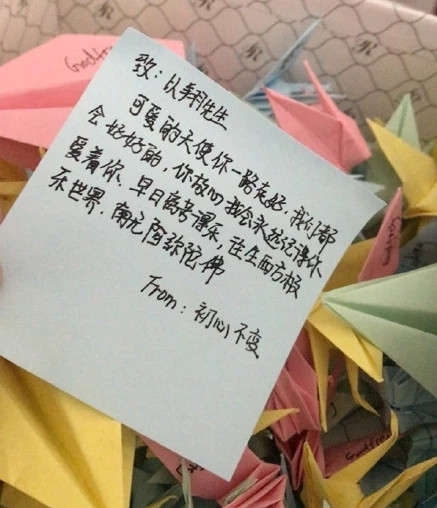 致：以翔先生
可爱的天使你一路走好，我们都
会好好的，你放心我会永远记得你
爱着你、早日离苦得乐，往生西方极
乐世界，南无阿弥陀佛
From：初心不变
Godfrey